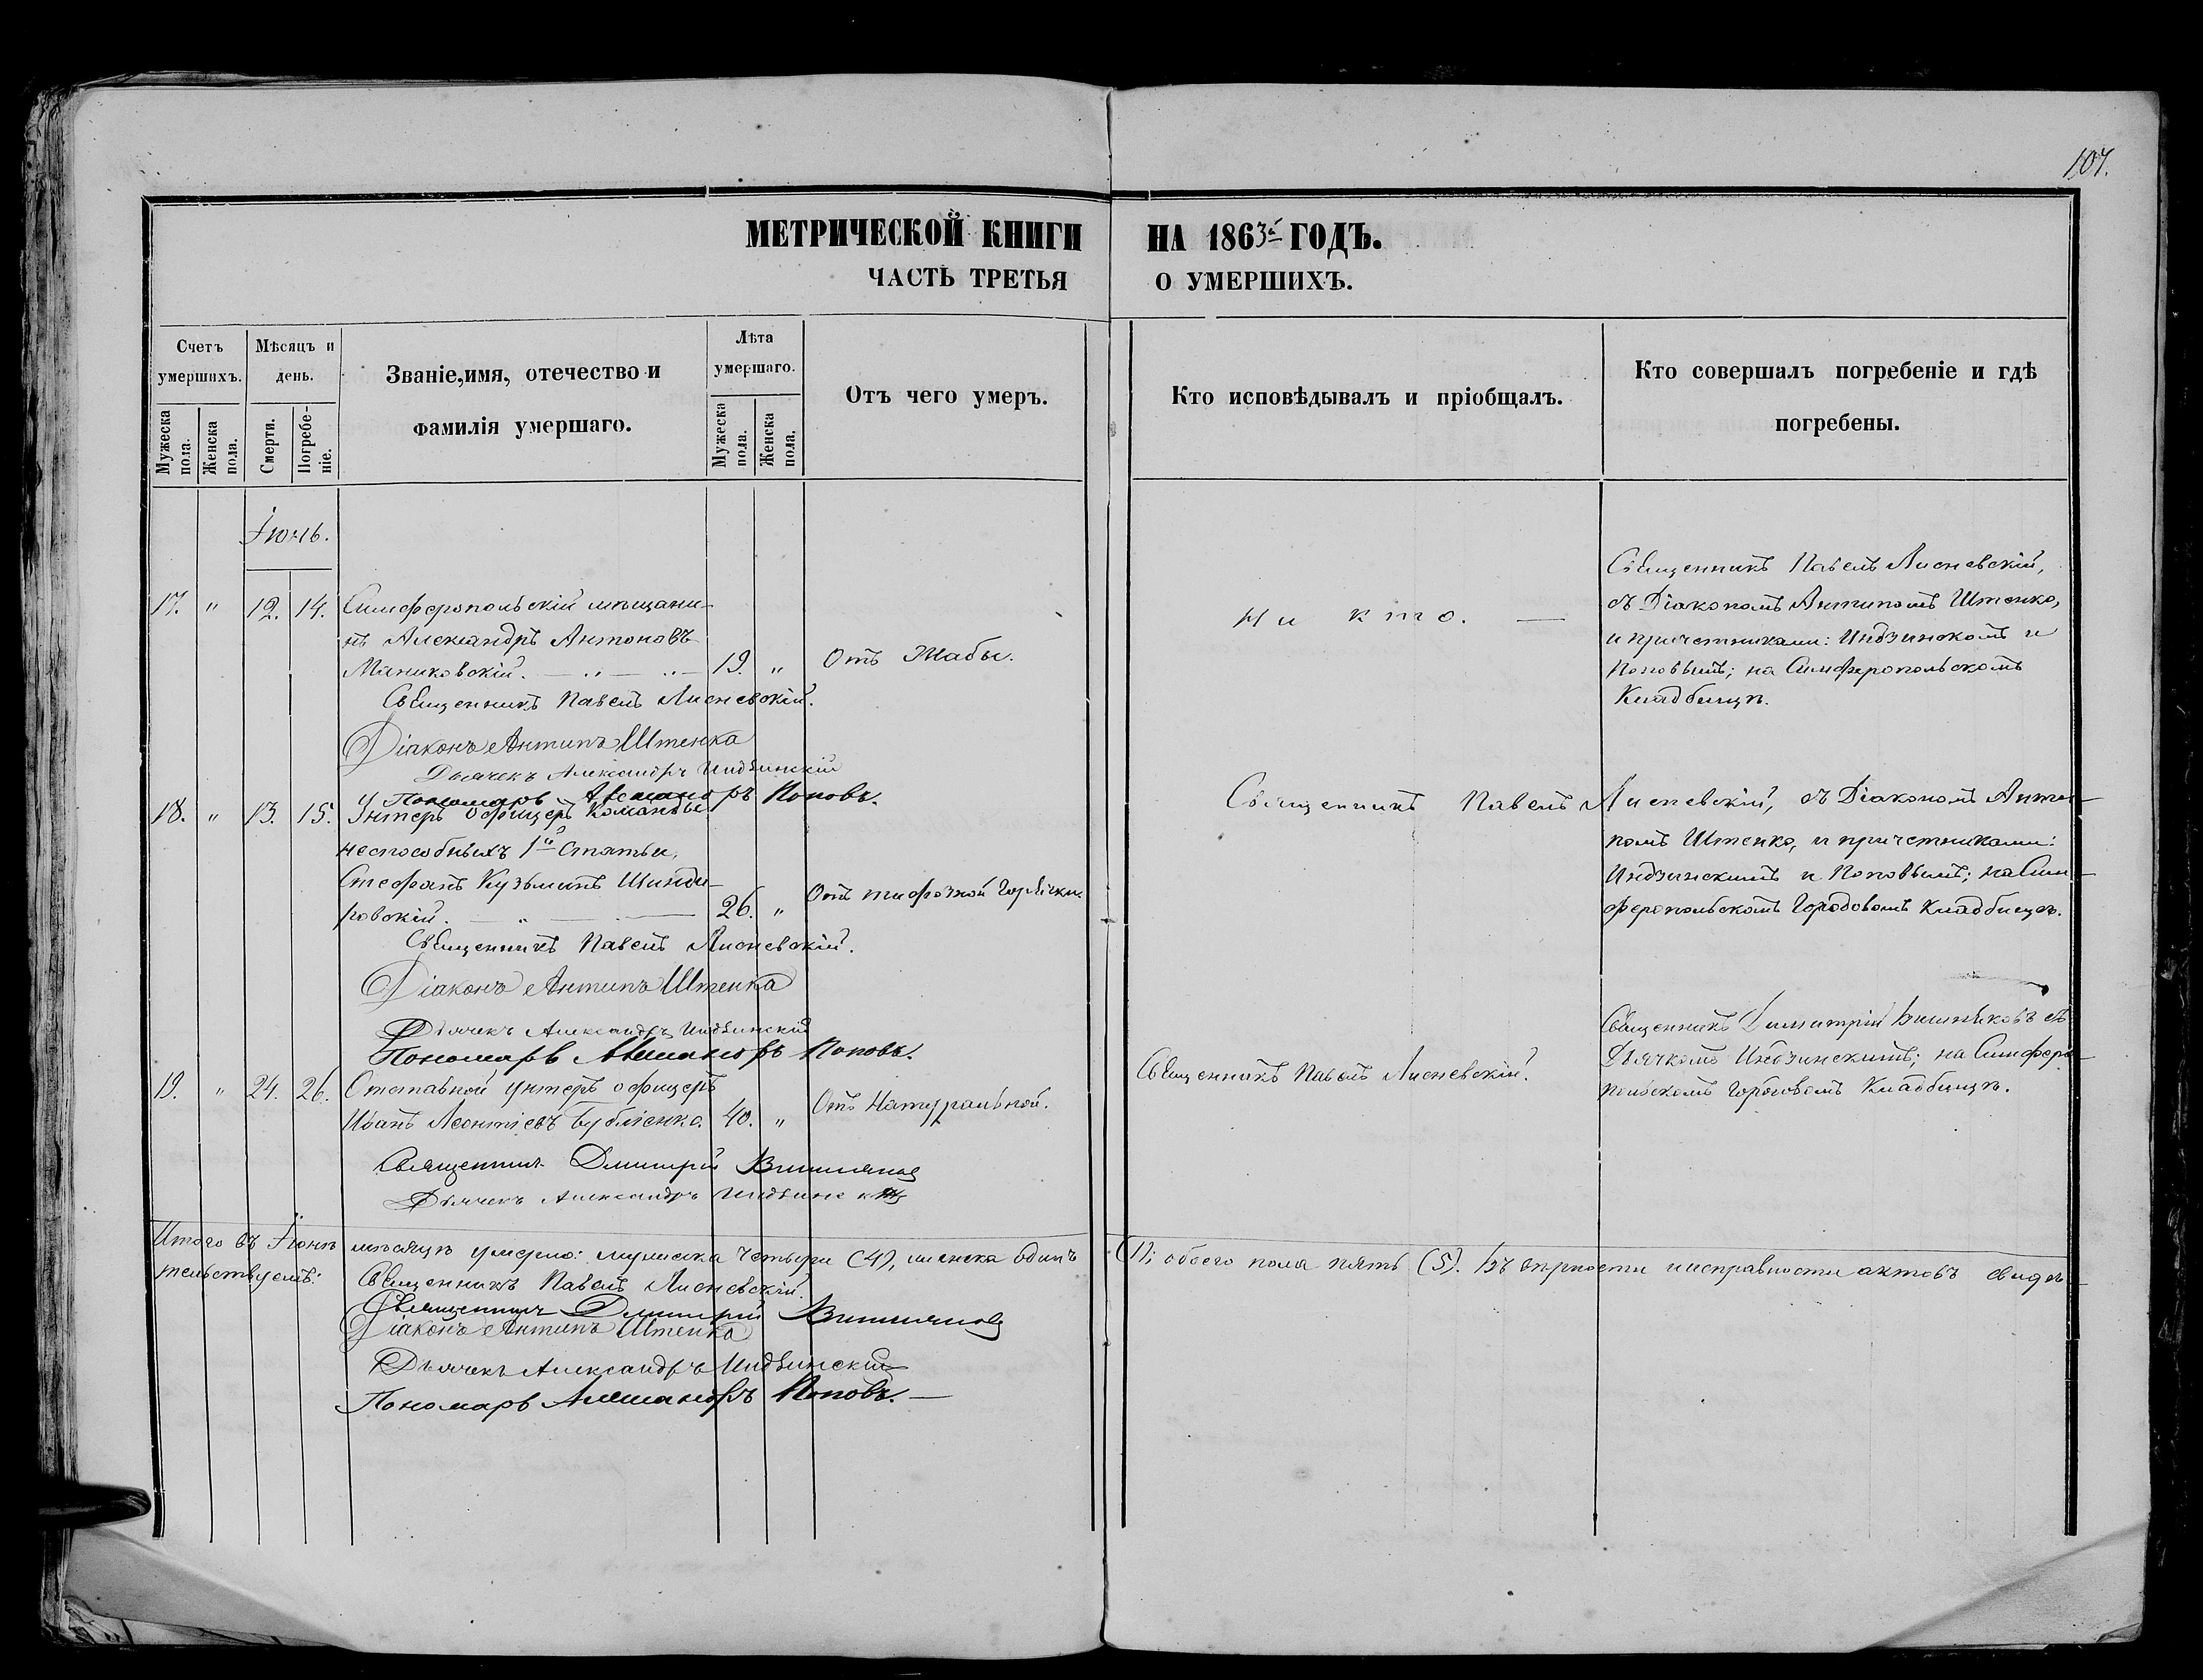 107.
МЕТРИЧЕСКОЙ КНИГИ НА 1863й ГОДЪ.
ЧАСТЬ ТРЕТЬЯ О УМЕРШИХЪ.
Счетъ умершихъ.
Мужеска пола.
Женска пола.
Мѣсяцъ и день.
Смерти.
Погребе-ніе.
Званіе, имя, отечество и
фамилія умершаго.
Лѣта умершаго.
Мужеска пола.
Женска пола.
Отъ чего умеръ.
Кто исповѣдывалъ и пріобщалъ.
Кто совершалъ погребеніе и гдѣ
погребены.
Іюнь.
17. " 12. 14. Симферопольскій мѣщани-
нъ Александръ Антоновъ
Маниковскій. 19. " Отъ Жабы.
Ни кто.
Священникъ Павелъ Лисневскій,
съ Діакономъ Антипомъ Штенко,
и причетниками: Индзинскомъ и
Поповымъ; на Симферопольскомъ
Кладбищѣ.
Священникъ Павелъ Лисневскій.
Діаконъ Антипъ Штенка
Дьячекъ Александръ Индзинскій
Пономарь Александръ Поповъ.
18. " 13. 15. Унтеръ офицеръ Команды
неспособныхъ 1й Статьи,
Стефанъ Кузьминъ Шинди-
ровскій. 26. " Отъ тифозной Горячки
Священникъ Павелъ Лисневскій, съ Діакономъ Анти-
помъ Штенко, и причетниками:
Индзинскимъ и Поповымъ; на Сим-
феропольскомъ Городовомъ Кладбищѣ.
Священникъ Павелъ Лисневскій.
Діаконъ Антипъ Штенка
Дьячекъ Александръ Индзинскій
Пономарь Александръ Поповъ.
19. " 24. 26. Отставной унтеръ офицеръ
Иванъ Леонтіевъ Бубліенко. 40. " Отъ Натуральной.
Священникъ Павелъ Лисневскій.
Священникъ Димитрій Вишняковъ съ
Дьячкомъ Индзинскимъ; на Симферо-
польскомъ Городовомъ Кладбищѣ.
Священникъ Дмитрій Вишняковъ
Дьячекъ Александръ Индзинскій
Итого въ Іюнѣ мѣсяцѣ умерло: мужеска четыри (4), женска одинъ (1); обоего пола пять (5). Въ вѣрности и исправности актовъ свидѣ-
тельствуемъ: Священникъ Павелъ Лисневскій.
Священникъ Дмитрій Вишняковъ
Діаконъ Антипъ Штенка
Дьячекъ Александръ Индзинскій
Пономарь Александръ Поповъ.